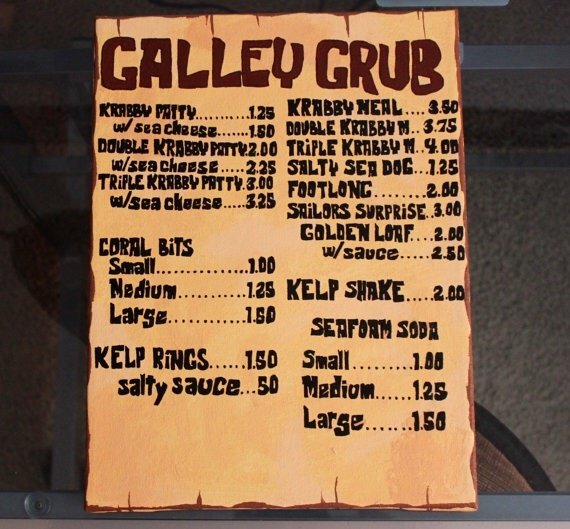 GALLEY GRUB
KRABBY PATTY..........1.25
w/sea cheese.........1.50
DOUBLE KRABBY PATTY.2.00
w/sea cheese.....2.25
TRIPLE KRABBY PATTY.3.00
w/sea cheese.....3.25
CORAL BITS
Small..............1.00
Medium...........1.25
Large............1.50
KELP RINGS......1.50
salty sauce...50
KRABBY MEAL....3.50
DOUBLE KRABBY M..3.75
TRIPLE KRABBY M..4.00
SALTY SEA DOG..1.25
FOOTLONG........2.00
SAILORS SURPRISE..3.00
GOLDEN LOAF....2.00
w/sauce.....2.50
KELP SHAKE.....2.00
SEAFOAM SODA
Small.........1.00
Medium......1.25
Large.......1.50